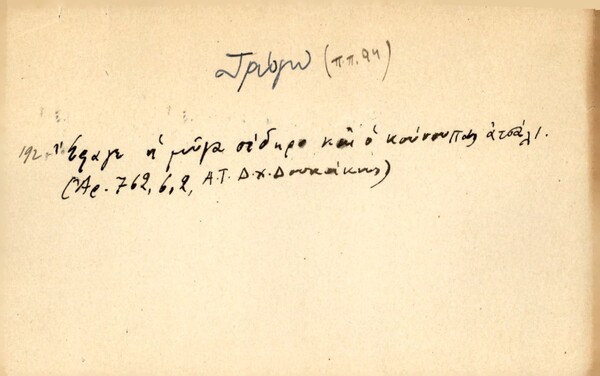 Τρώγω (π.π. 94)
192. Ἔφαγε ἡ μῦγα σίδηρο καὶ ὁ κούνουπας ἀτσάλι.
(Ἀρ. 762, 6, 2, Α.Τ. Δ.χ. Δουκάκης)